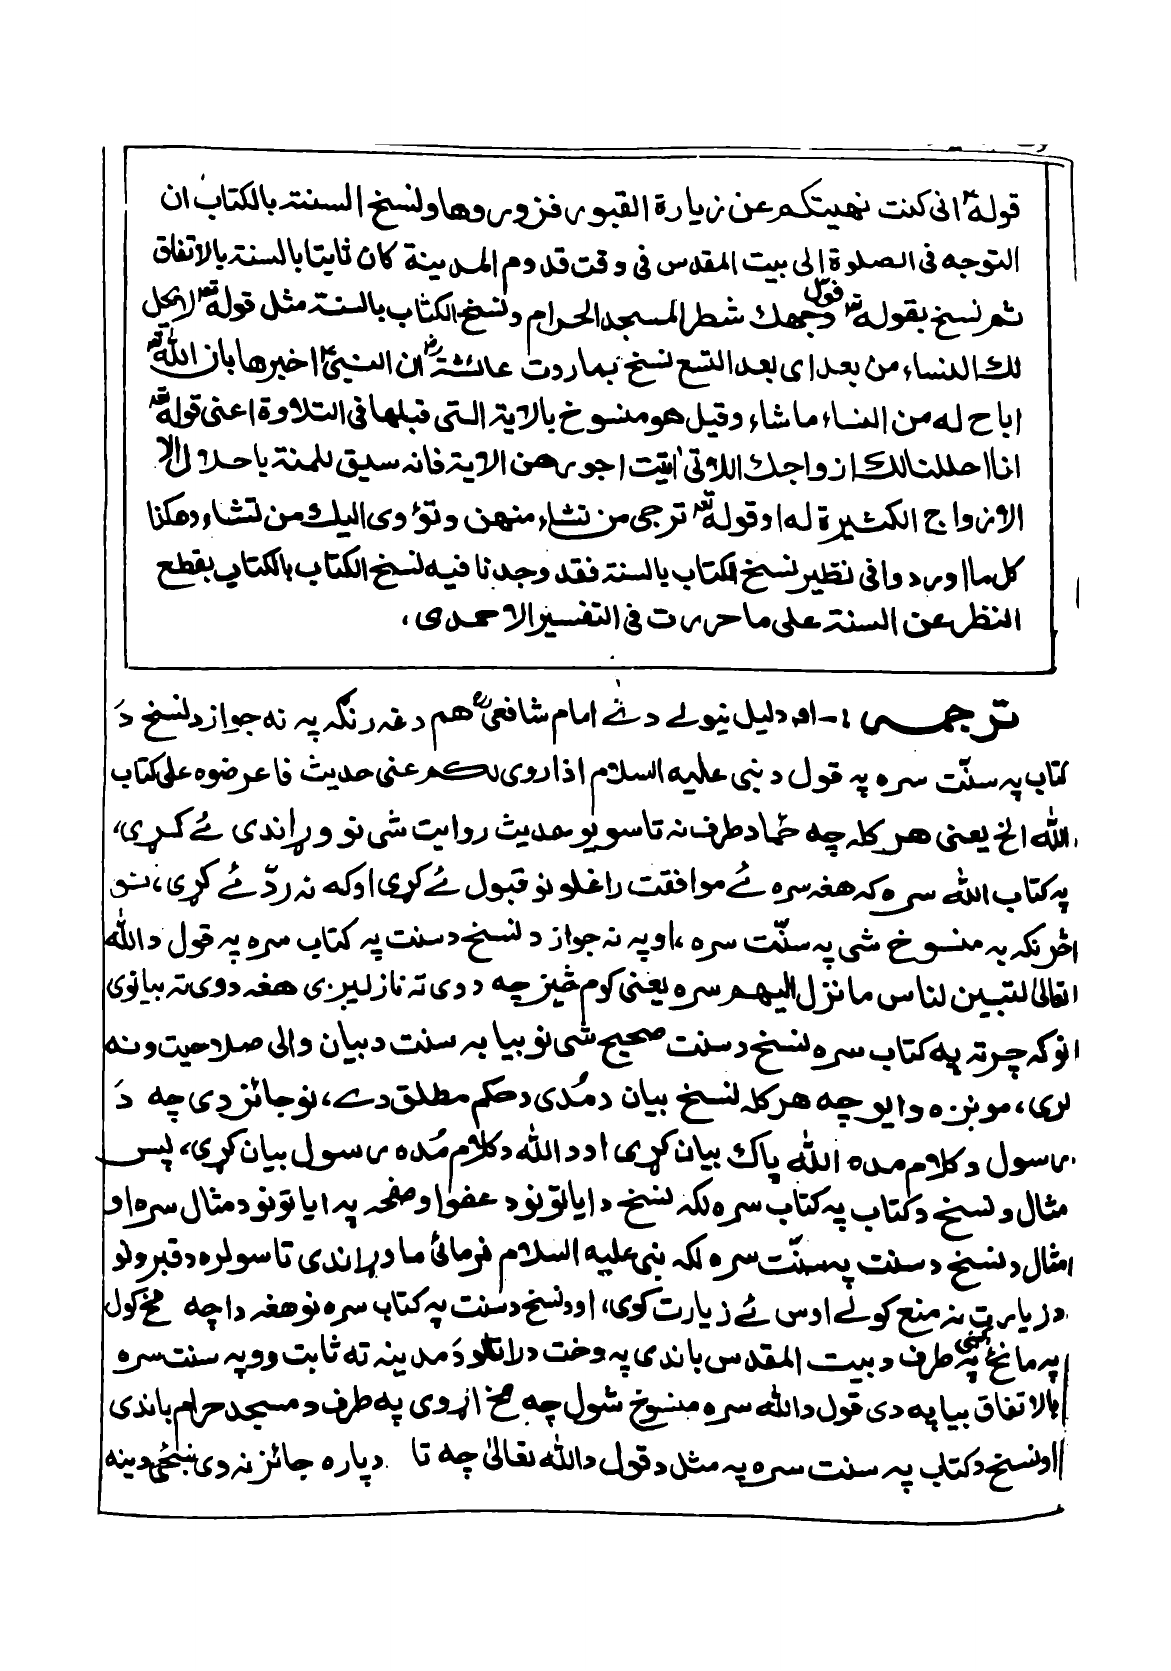 قوله ؑ انی کنت نهیتکم عن زیارة القبور فزوروها ونسخ السنة بالکتاب ان
التوجه فی الصلوة الی بیت المقدس فی وقت قدوم المدینة کان ثابتا بالسنة بالاتفاق
ثم نسخ بقوله تع فول وجهك شطر المسجد الحرام ونسخ الکتاب بالسنة مثل قوله تع لا یحل
لك النساء من بعد ای بعد التسع نسخ بما روت عائشة رض ان النبی ؑ اخبرها بان الله تع
اباح له من النساء ما شاء وقیل هو منسوخ بالایة التی قبلها فی التلاوة اعنی قوله تع
انا احللنا لك ازواجك اللاتی اتیت اجورهن الایة فانه سیق للمنة باحلال الا
الازواج الکثیرة له او قوله تع ترجی من تشاء منهن وتؤوی الیك من تشاء وهکذا
کل ما اوردوا فی نظیر نسخ الکتاب بالسنة فقد وجدنا فیه نسخ الکتاب بالکتاب بقطع
النظر عن السنة علی ما حررت فی التفسیر الاحمدی ،
ترجمه :- او دلیل نیولے دئے امام شافعیؒ هم دغه رنگه په نه جواز د نسخ دَ
کتاب په سنّت سره په قول د نبی علیه السلام اذا روی لکم عنی حدیث فاعرضوه علی کتاب
الله الخ یعنی هر کله چه حُما د طرف نه تاسو یو حدیث روایت شی نو وړاندی ئے کړی،
په کتاب الله سره که هغه سره ئے موافقت راغلو نو قبول ئے کړی اوکه نه ردّ ئے کړی، نو
څرنگه به منسوخ شی په سنّت سره ، او په نه جواز د نسخ د سنت په کتاب سره په قول د الله
تعالیٰ لتبین لناس ما نزل الیهم سره یعنی کوم څیز چه دوی ته نازلیږی هغه دوی ته بیانوی
نو که چرته په کتاب سره نسخ د سنت صحیح شی نو بیا به سنت د بیان والی صلاحیت ونه
لری، مونږه وایو چه هر کله نسخ بیان د مُدی د حکم مطلق دے، نو جائز دی چه دَ
رسول د کلام مده الله پاك بیان کړی او د الله د کلام مُده رسول بیان کړی، پس
مثال د نسخ د کتاب په کتاب سره لکه نسخ د ایاتونو د عفوا وصفحه په ایاتونو د مثال سره او
مثال د نسخ د سنت په سنّت سره لکه نبی علیه السلام فرمائی ما وړاندی تاسو لره د قبرونو
د زیارت نه منع کولے اوس ئے زیارت کوی، او د نسخ د سنت په کتاب سره نو هغه داچه مخ کول
په مانځه کښی په طرف د بیت المقدس باندی په وخت د راتلو دَ مدینه ته ثابت وو په سنت سره
بالاتفاق بیا په دی قول د الله سره منسوخ شول چه مخ اړوی په طرف د مسجد حرام باندی
او نسخ د کتاب په سنت سره په مثل د قول د الله تعالیٰ چه تا دپاره جائز نه دی ښځی دینه